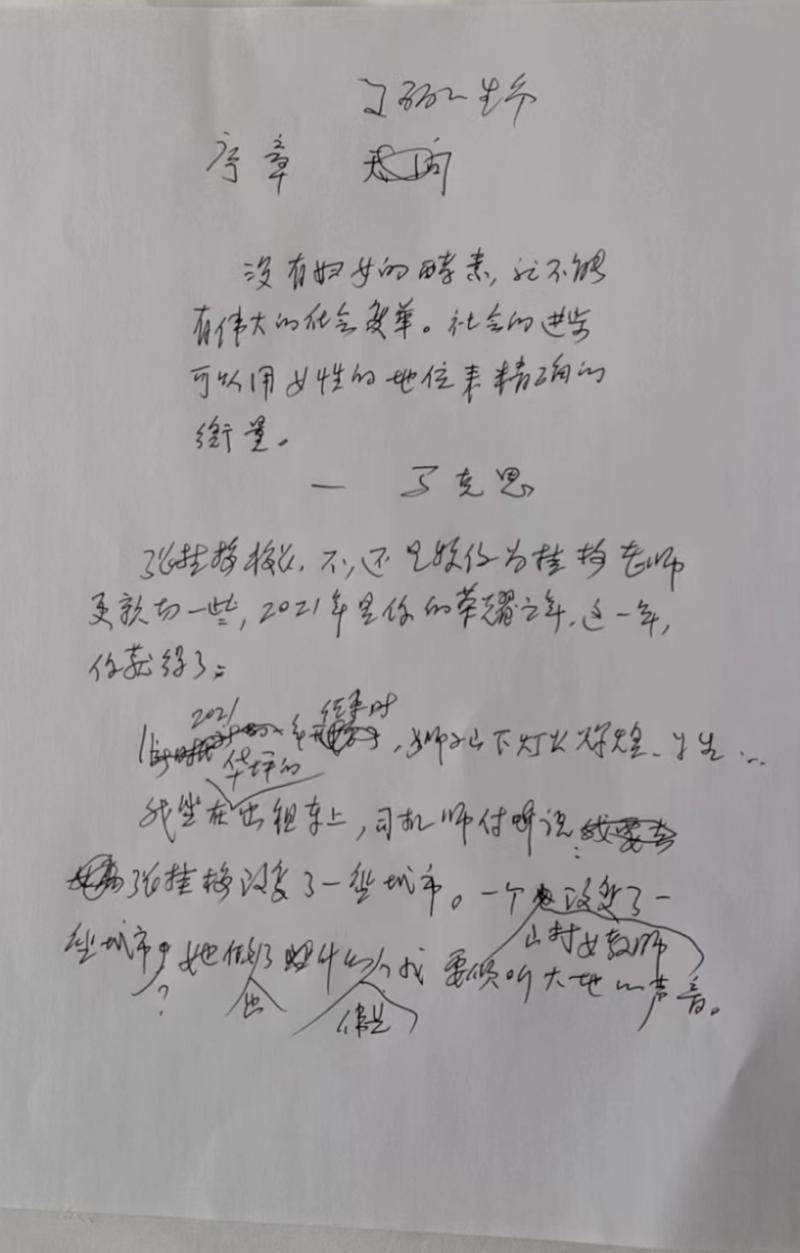 序章
没有妇女的酵素,就不能
有伟大的社会变革。社会的进步
可以用女性的地位来精确的
衡量。
— 马克思
张桂梅校长,不,还是称你为桂梅老师
更亲切一些,2021年是你的荣耀之年,这一年,
你获得了:
2021
,狮子山下灯火辉煌
华坪的
我坐在出租车上,司机师付啊说:
张桂梅改变了一座城市。一个改变了一
山村女教师
座城市?她做了些什么?我要倾听大地的声音。